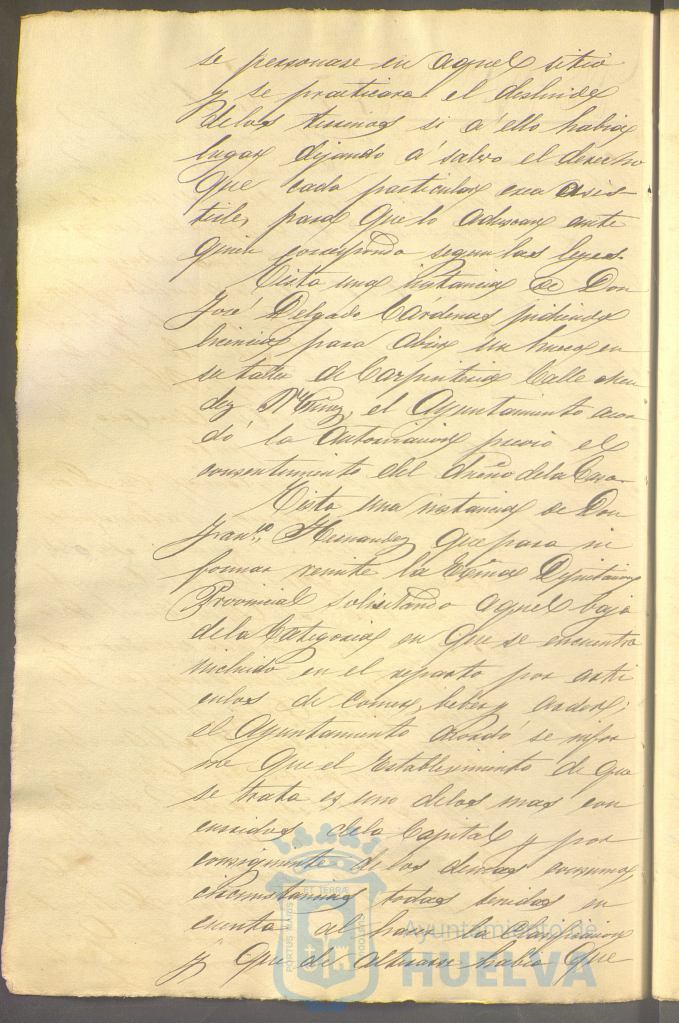 se personase en aquel sitio
y se practicara el deslinde
de los terrenos si a' ello habia
lugar dejando a' salvo el derecho
que cada particular crea asis
tirle, para que lo aduzcan ante
quien corresponda segun las leyes.
Vista una instancia de Don
José Delgado Cárdenas pidiendo
licencia para abrir un hueco en
su taller de Carpinteria Calle Men
dez Nuñez, el Ayuntamiento acor
dó la autorizacion previo el
consentimiento del dueño de la Casa.
Vista una instancia de Don
Fran.co Hernandez que para in
formar remite la Exma Diputacion
Provincial solicitando aquel baja
de la Categoria en que se encuentra
incluido en el reparto por arti
culos de comer, beber y arder;
el Ayuntamiento acordó se infor
me que el Establecimiento de que
se trata es uno de los mas con
curridos de la Capital y por
consiguiente de los demas consumos,
circunstancias todas tenidas en
cuenta al hacer la clasificacion
y que de alterarse habia que
PORTUS MARIS ET TERRÆ CUSTODIA
Ayuntamiento de
HUELVA